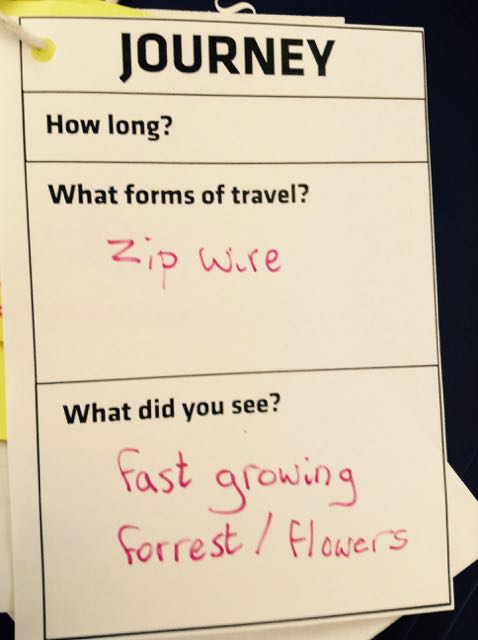 JOURNEY
How long?
What forms of travel?
Zip wire
What did you see?
fast growing
forrest / flowers